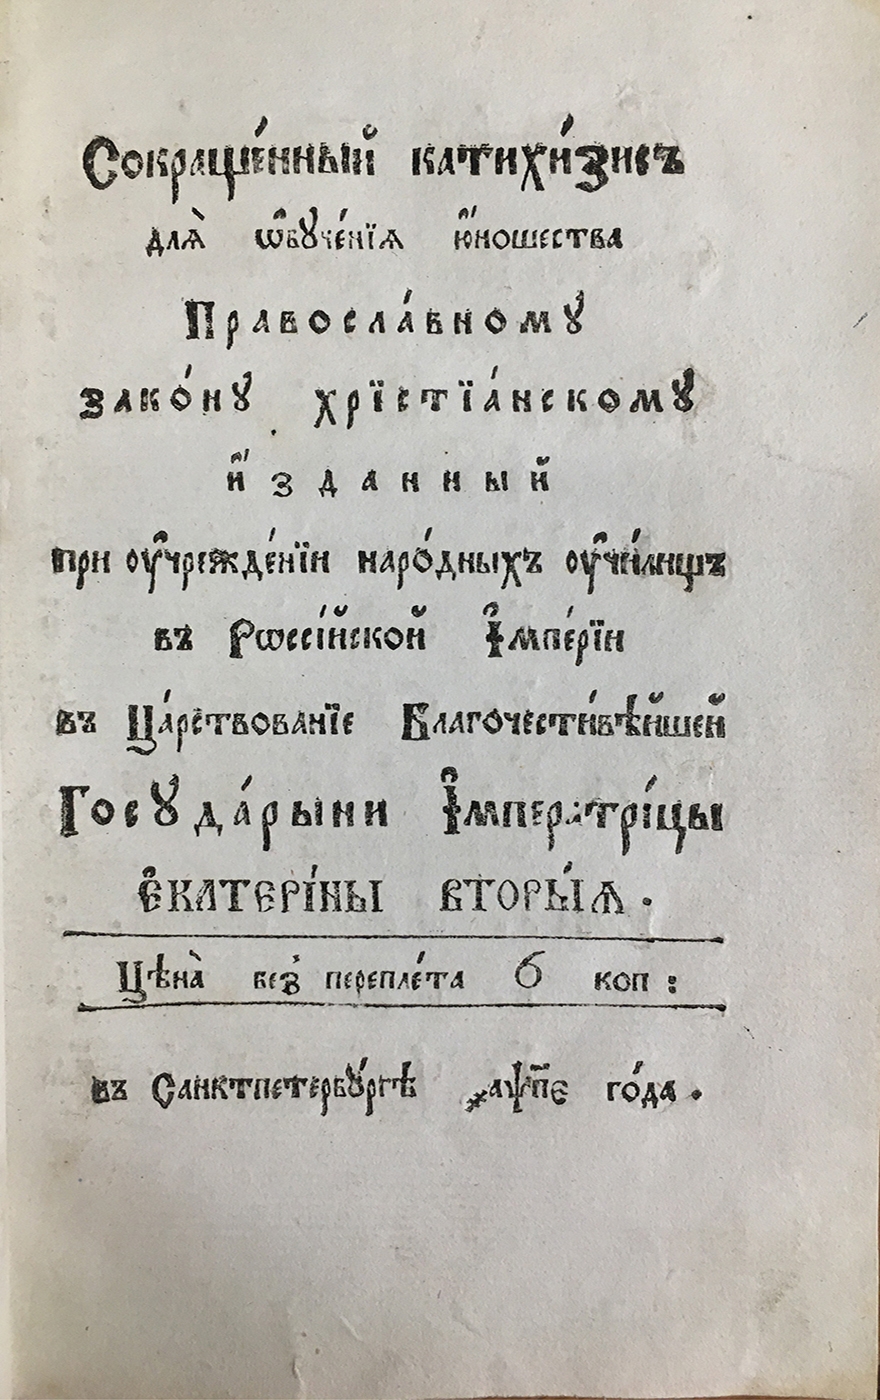 Сокращє́нный катихи́зисъ
длѧ̀ ѡ҆бꙋче́нїѧ ю҆́ношества
Правосла́вномꙋ
зако́нꙋ хрїстїа́нскомꙋ
и҆́зданный
при оу҆чрежде́нїи наро́дныхъ оу҆чи́лищъ
въ Рѡссі́йской І҆мпе́рїи
въ Ца́рствованїе Благочести́вѣйшей
Госꙋда́рыни І҆мператрі́цы
Є҆КАТЕРІ́НЫ ВТОРЫ́Ѧ .
Цѣна̀ без̾ перепле́та 6 коп :
въ Санктпетербꙋ́ргѣ ҂аѱп҃є го́да .